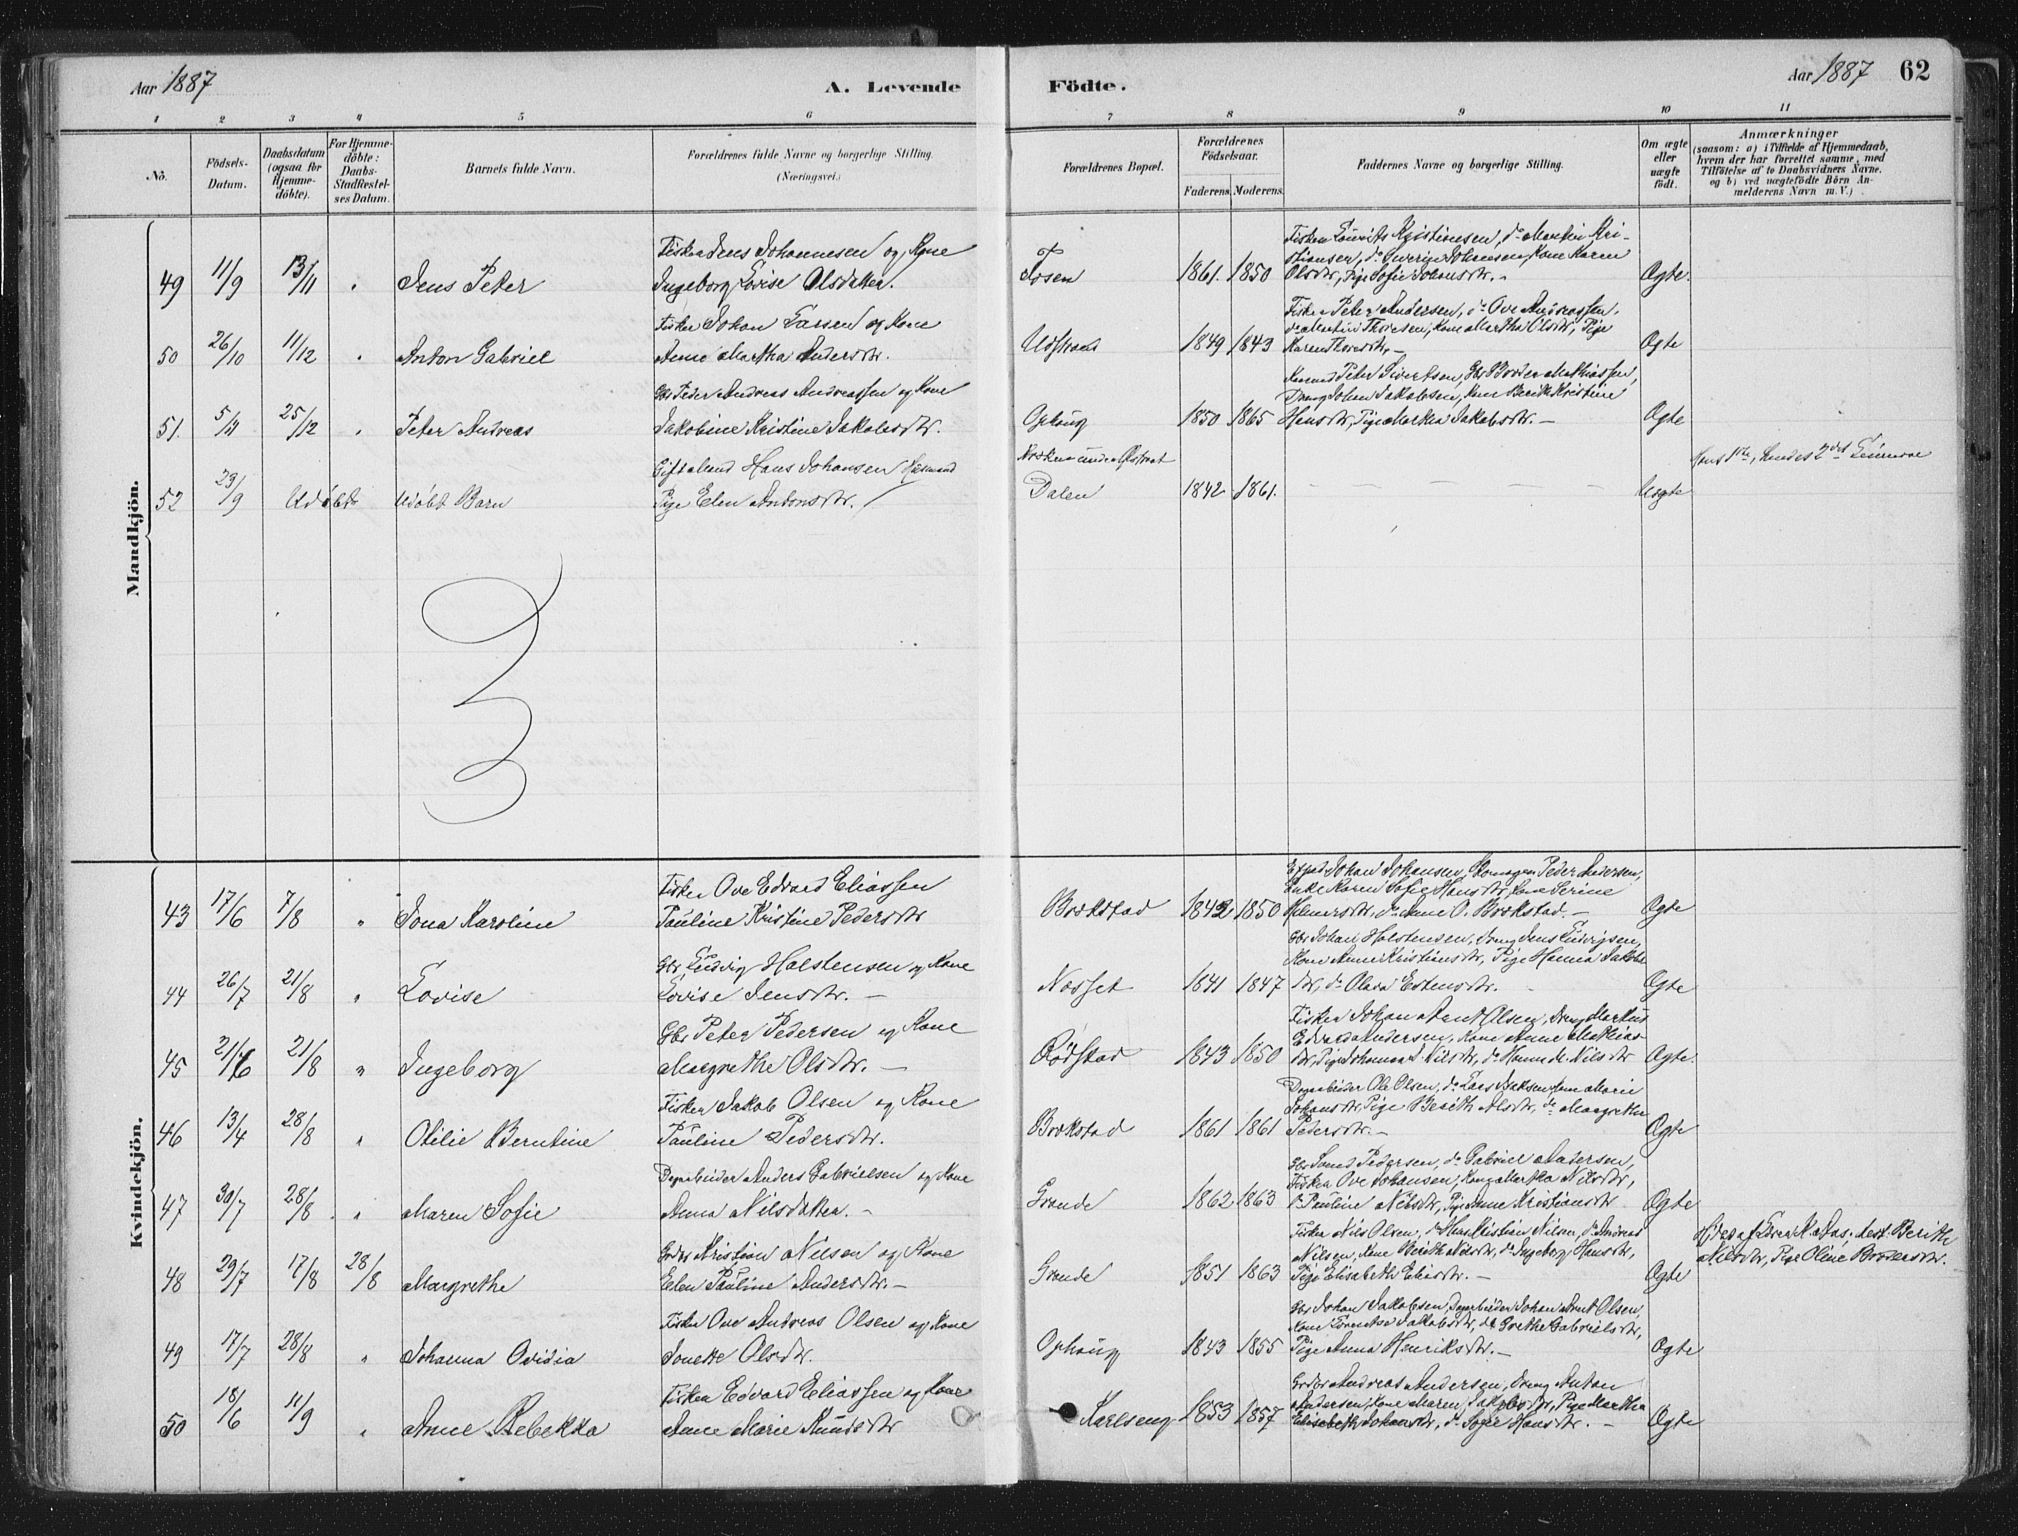 Aar 1887
A. Levende
Födte.
Aar 1887
62
1 2 3 4 5 6 7 8 9 10 11
No.
Födsels-Datum.
Daabsdatum (ogsaa for Hjemme-döbte).
For Hjemme-döbte: Daabs-Stadfæstel-ses Datum.
Barnets fulde Navn.
Forældrenes fulde Navne og borgerlige Stilling. (Næringsvei.)
Forældrenes Bopæl.
Forældrenes Födselsaar.
Faderens. Moderens.
Faddernes Navne og borgerlige Stilling.
Om ægte eller uægte födt.
Anmærkninger
(saasom: a) i Tilfælde af Hjemmedaab,
hvem der har forrettet samme, med
Tilföielse af to Daabsvidners Navne,
og b) ved uægtefödte Börn An-
melderens Navn m. V.)
Mandkjön.
Fisker Jens Johannesen og Kone
49 11/9 13/11 " Jens Peter Ingeborg Lovise Olsdatter. Fosen 1861. 1850 Olsdtr, Pige Sofie Johansdtr. - Ægte.
Fisker Johan Larsen og Kone
Fisker Peter Andersen, do Ove Andreassen,
do Martin Thoresen, Kone Martha Olsdtr, Pige
50 26/10 11/12 " Anton Gabriel Anne Martha Andersdtr. Udstraat 1849 1843 Karen Thoresdtr. - Ægte
Gbr Peder Andreas Andreassen og Kone
Peter Sivertsen, Gbr
Dreng Johan Jakobsen, Kone Berith Kristine
51. 5/11 25/12 " Peter Andreas Jakobine Kristine Jakobsdtr. Ophaug 1850 1865 Hansdtr, Pige Martha Jakobsdtr. - Ægte
Hans Johansen Husmand
Hans 1ste, hendes 2det Leiermaal
52 23/9 Udöbt Udöbt Barn Pige Elen Antonsdtr. Dalen 1842 1861. Uægte
Kvindekjön.
Fisker Ove Edvard Eliassen
Johan Johansen, Peder Andersen,
Enke Karen Sofie Hansdtr, Kone Serine
43 17/6 7/8 " Jona Karoline Pauline Kristine Pedersdtr Brækstad 1842 1850 do Anne O. Brækstad. - Ægte
Gbr Ludvig Halstensen og Kone
Gbr Johan Halstensen, Dreng Jens Ludvigsen,
Kone Anne Kristiansdtr, Pige Hanna Jakobs
44 26/7 21/8 " Lovise Lovise Jensdtr. - Næsset 1841 1847 dtr, do Olava Estensdtr. Ægte
Gbr Peter Pedersen og Kone
Fisker Johan Arnt Olsen, Dreng Markus
Edvard Andersen, Kone Anne Mathias-
45 21/6 21/8 " Ingeborg Margrethe Olsdtr. - Rödstad 1843 1850 dtr, Pige Johanna Nilsdtr, do Hanna M. Nilsdtr Ægte.
Fisker Jakob Olsen og Kone
Dagarbeider Ole Olsen, do Lars Isaksen, Kone Marie
Johansdtr, Pige Berith Olsdtr, do Margrethe
46 13/4 28/8 " Otilie Berntine Pauline Pedersdtr. Brækstad 1861 1861 Pedersdtr. - Ægte
Dagarbeider Anders Gabrielsen og Kone
Gbr Pedersen, do Gabriel Andersen,
Fisker Ove Johansen, Kone Martha Nilsdtr,
47 30/7 28/8 " Maren Sofie Anna Nilsdatter. - Grande 1862 1863 do Pauline Nilsdtr, Pige Anne Kristiansdtr Ægte
Kristian Nilsen og Kone
Fisker Nils Olsen, do Hans Kristian Nilsen, do Andreas
Nilsen, Kone Berith Nilsdtr, do Ingeborg Hansdtr,
48 29/7 17/8 28/8 Margrethe Elen Pauline Andersdtr. - Grande 1851 1863 Pige Elisabeth Eliasdtr. - Ægte
Berith
Nilsdtr, Pige Oline
Fisker Ove Andreas Olsen og Kone
Gbr Johan Jakobsen, Dagarbeider Johan Arnt Olsen,
Kone Lorentse Jakobsdtr, do Grethe Gabrielsdtr,
49 17/7 28/8 " Johanna Ovidia Jonette Olsdtr. Ophaug 1843 1855 Pige Anna Henriksdtr. - Ægte
Fisker Edvard Eliassen og Kone
Andreas Andersen, Dreng Anton
Andersen, Kone Maren Jakobsdtr, Pige Martha
50 18/6 11/9 " Anne Rebekka Anne Marie Knudsdtr Karlseng 1853 1857 Elisabeth Johansdtr, do Sofie Hansdtr. - Ægte